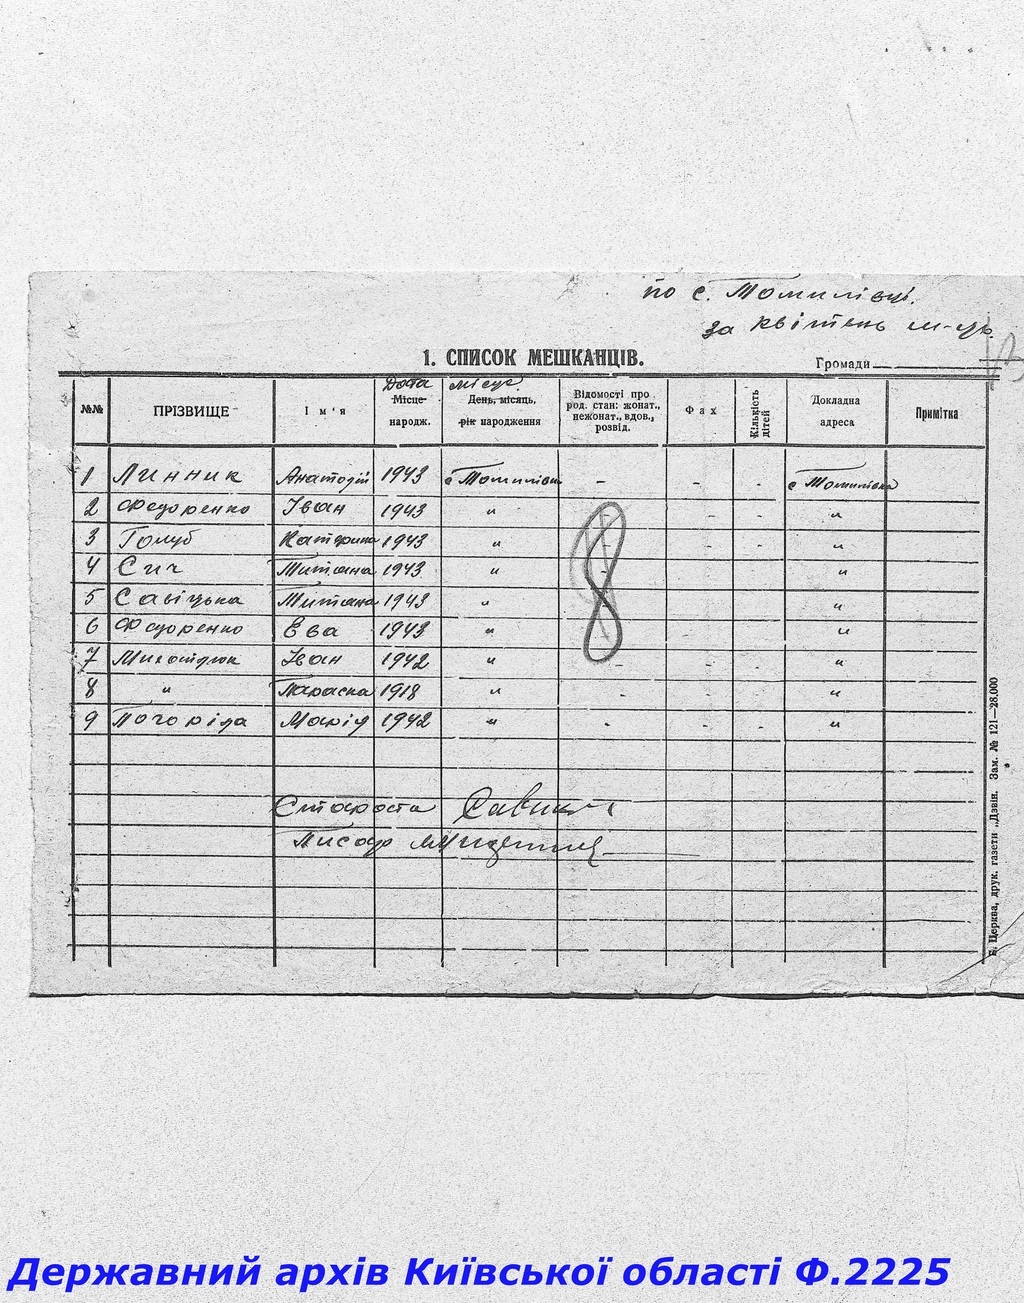 по с. Томилівці.
за квітень м-ць.
1. СПИСОК МЕШКАНЦІВ.
Громади
№№ ПРІЗВИЩЕ Ім'я Дата Місце народж. місце День, місяць, рік народження Відомості про род. стан: жонат., нежонат., вдов., розвід. Фах Кількість дітей Докладна адреса Примітка
1 Линник Анатолій 1943 с Томилівка - - - с Томилівка
2 Федоренко Іван 1943 " "
3 Голуб Катерина 1943 " "
4 Сич Титяна 1943 " "
5 Савіцька Титяна 1943 " "
6 Федоренко Ева 1943 " "
7 Іван 1942 " "
8 " Параска 1918 " "
9 Погоріла Марія 1942 " "
8
Староста
Писар
Б. Церква, друк. газети „Дзвін. Зам. № 121—28.000
Державний архів Київської області Ф.2225